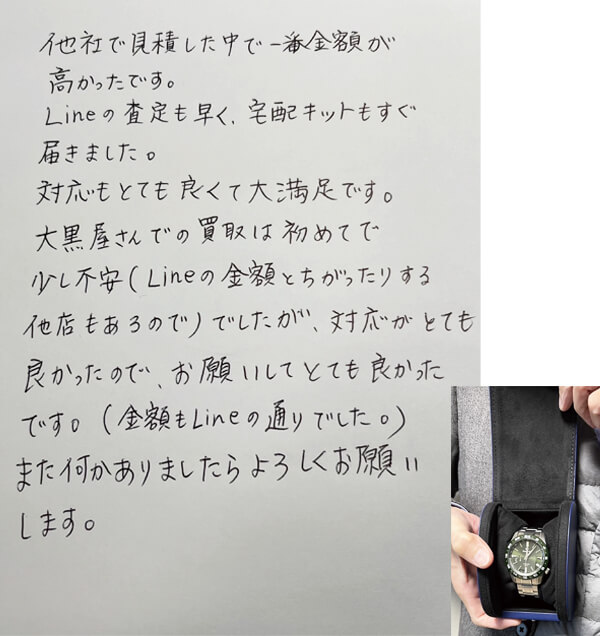 他社で見積した中で一番金額が
高かったです。
Lineの査定も早く、宅配キットもすぐ
届きました。
対応もとても良くて大満足です。
大黒屋さんでの買取は初めてで
少し不安(Lineの金額とちがったりする
他店もあるので)でしたが、対応がとても
良かったので、お願いしてとても良かった
です。(金額もLineの通りでした。)
また何かありましたらよろしくお願い
します。